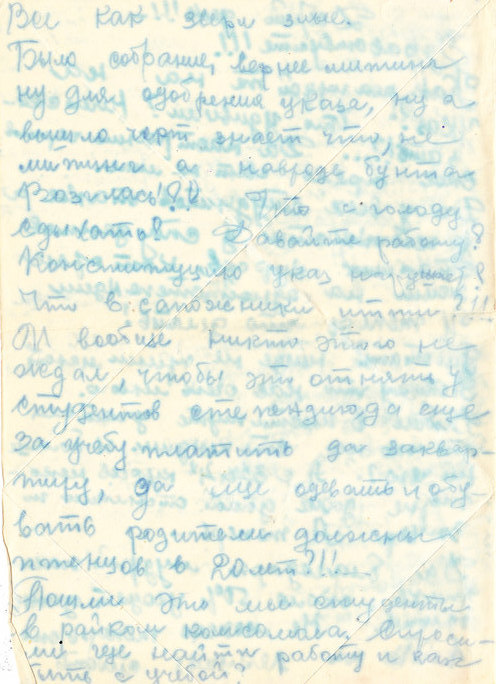 Все как звери злые.
Было собрание, вернее митинг
ну для одобрения указа, ну а
вышло черт знает что, не
митинг а навроде бунта
Что с голоду
сдыхать? Давайте работу?
Конституцию указ нарушает?
Что в сапожники итти?!!
И вообще никто этого не
ждал, чтобы это отнять у
студентов стипендию, да еще
за учебу платить да за квар-
тиру, да еще одевать и обу-
вать родители должны
птенцов в 20 лет?!!
Пошли это мы студенты
в райком комсомола. Спроси-
ли где найти работу и как
быть с учебой?